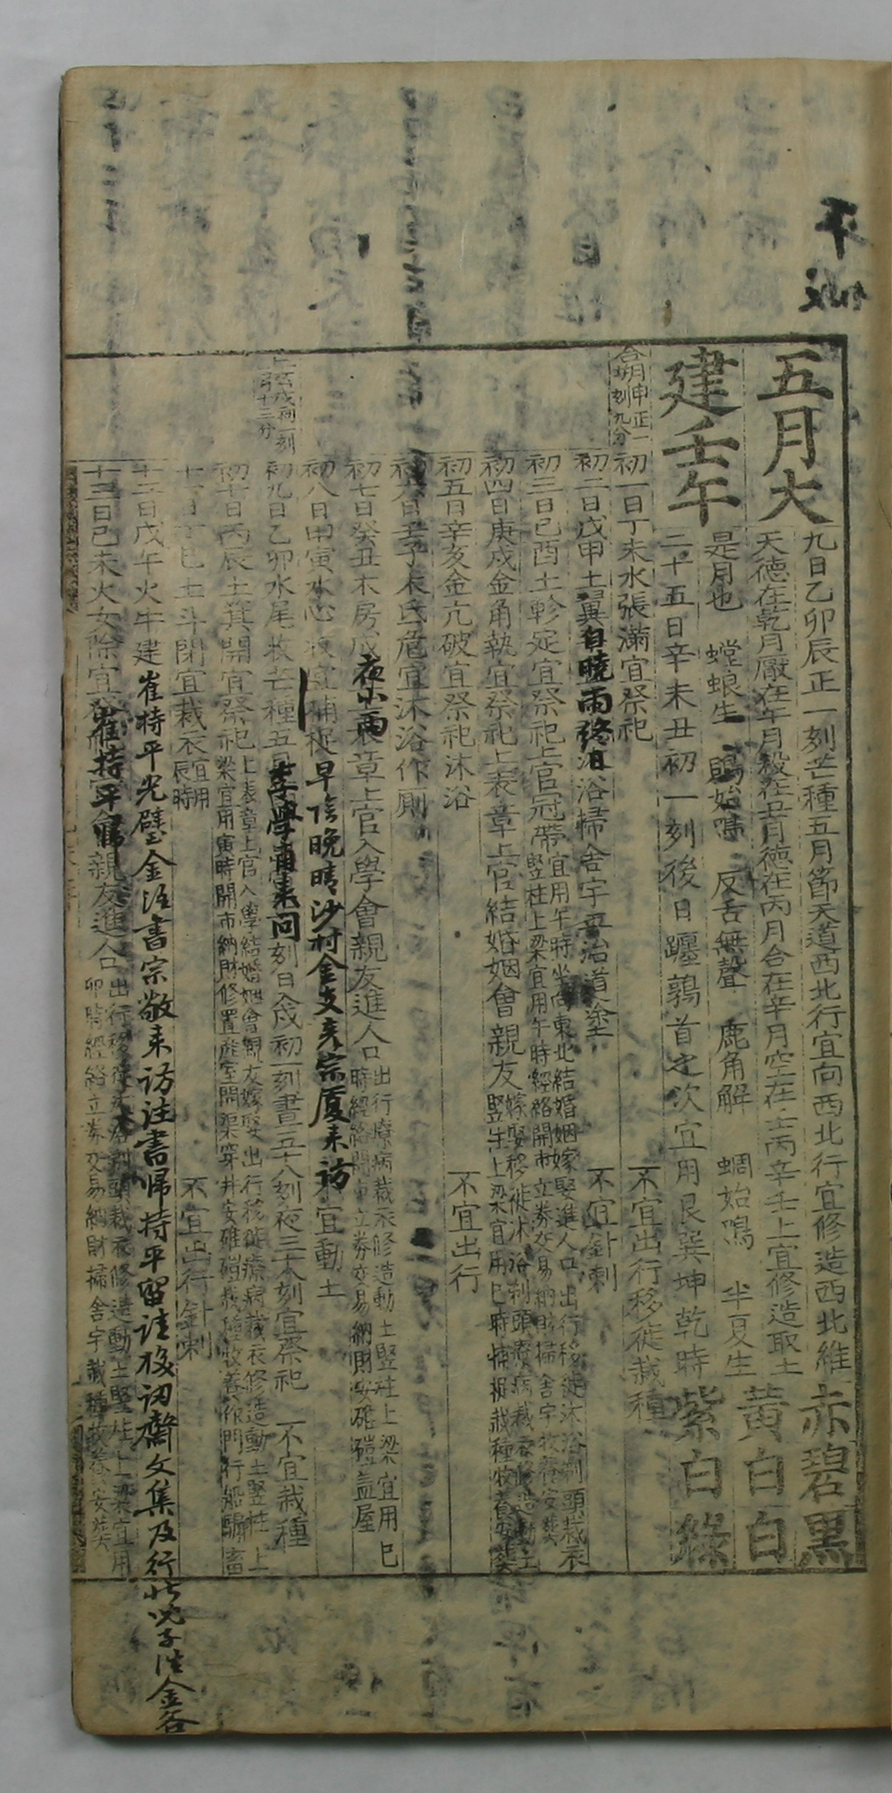 五月大
九日乙卯辰正一刻芒種五月節天道西北行宜向西北行宜修造西北維
天德在乾月厭在午月殺在丑月德在丙月合在辛月空在壬丙辛壬上宜修造取土
建壬午
是月也 螳蜋生 鵙始鳴 反舌無聲 鹿角解 蜩始鳴 半夏生
二十五日辛未丑初一刻後日躔鶉首之次宜用艮巽坤乾時
赤碧黑
黃白白
紫白綠
初一日丁未水張滿宜祭祀 不宜出行移徙栽種
合朔申正一刻九分
初二日戊申土翼 自曉雨終日 浴掃舍宇 治道塗 不宜針刺
初三日己酉土軫定宜祭祀上官冠帶宜用午時坐向東北結婚姻嫁娶進人口出行移徙沐浴剃頭裁衣
豎柱上梁宜用午時經絡開市立券交易納財掃舍宇牧養安葬
初四日庚戌金角執宜祭祀上表章上官結婚姻會親友嫁娶移徙沐浴剃頭療病裁衣修造動土
豎柱上梁宜用巳時捕捉栽種牧養安葬
初五日辛亥金亢破宜祭祀沐浴 不宜出行
初六日壬子木氐危宜沐浴作廁
初七日癸丑木房成 夜小雨 表章上官入學會親友進人口出行療病裁衣修造動土豎柱上梁宜用巳
時經絡開市立券交易納財安碓磑蓋屋
初八日甲寅水心 早陰晚晴沙村金支彥宗廈來訪 不宜動土
上弦戌初一刻十三分
初九日乙卯水尾收芒種五 李學甫來問 刻日入戌初一刻晝五十八刻夜三十八刻宜祭祀 不宜栽種
初十日丙辰土箕開宜祭祀上表章上官入學結婚姻會親友嫁娶出行移徙療病裁衣修造動土豎柱上
梁宜用寅時開市納財修置產室開渠穿井安碓磑栽種牧養作門行船騸畜
十一日丁巳土斗閉宜裁衣宜用辰時 不宜出行針刺
十二日戊午火牛建 崔持平光璧金注書宗敬來訪注書歸持平留 文集及行狀
十三日己未火女除宜 崔持平歸 會親友進人口出行移徙 剃頭裁衣修造動土豎柱上梁宜用
卯時經絡立券交易納財掃舍宇栽種牧養安葬